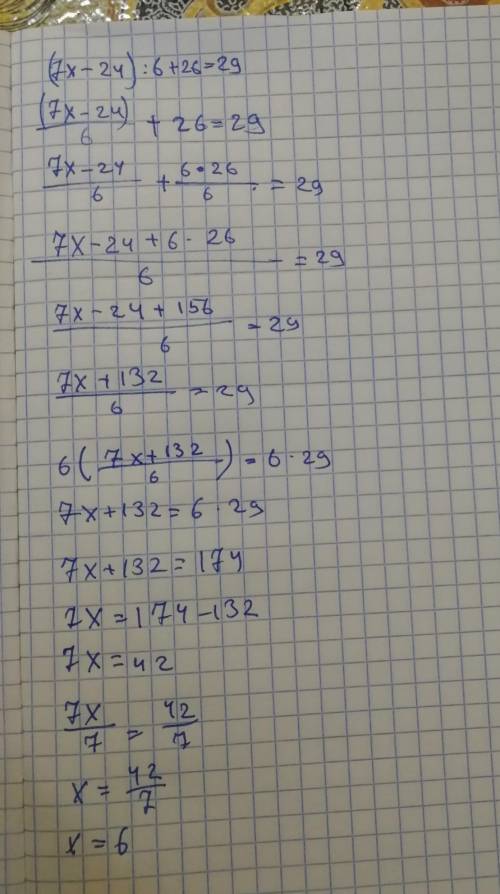 (7x-24):6+26=29
(7x-24)/6 + 26=29
7x-24/6 + 6•26/6 . = 29
7x-24+6·26/6 =29
7x-24+156/6 =29
7x+132/6 =29
6(7x+132/6)=6·29
7x+132=6·29
7x+132=174
7x=174-132
7x=42
7x/7 = 42/7
x=42/7
x=6